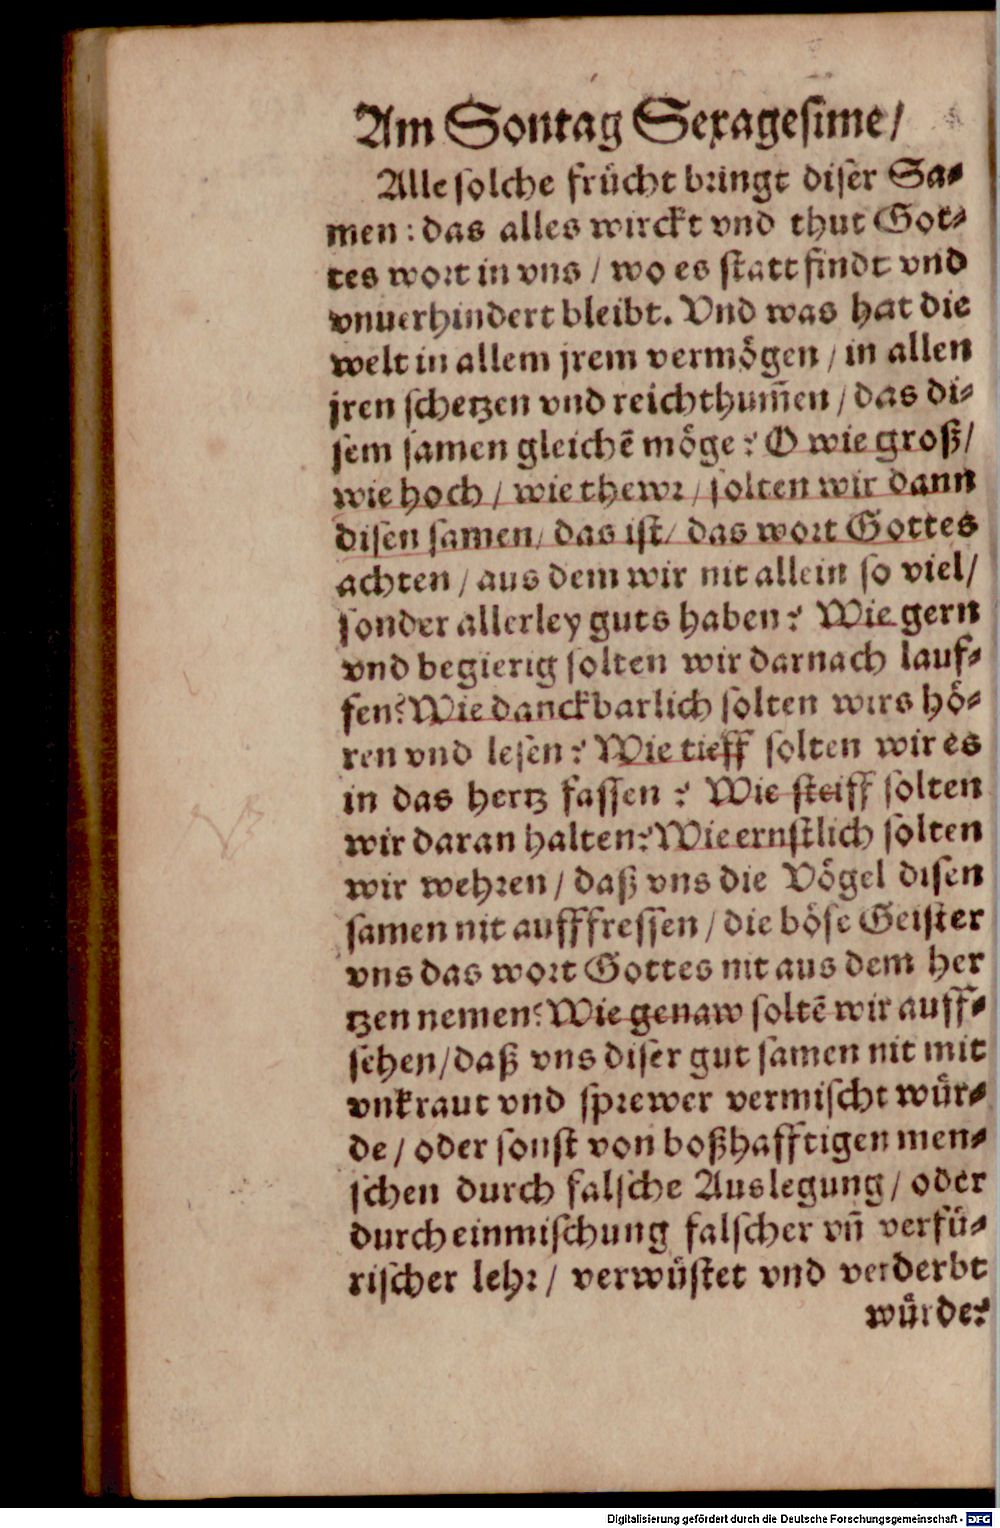 Am Sontag Sexagesime/
Alle solche frücht bringt diser Sa⸗
men: das alles wirckt vnd thut Got⸗
tes wort in vns / wo es statt findt vnd
vnuerhindert bleibt. Vnd was hat die
welt in allem jrem vermögen / in allen
jren schetzen vnd reichthum̃en / das di⸗
sem samen gleichẽ möge? O wie groß/
wie hoch / wie thewr / solten wir dann
disen samen / das ist / das wort Gottes
achten / aus dem wir nit allein so viel/
sonder allerley guts haben? Wie gern
vnd begierig solten wir darnach lauf⸗
fen? Wie danckbarlich solten wirs hö⸗
ren vnd lesen? Wie tieff solten wir es
in das hertz fassen? Wie steiff solten
wir daran halten? Wie ernstlich solten
wir wehren / daß vns die Vögel disen
samen nit aufffressen / die böse Geister
vns das wort Gottes nit aus dem her
tzen nemen? Wie genaw soltẽ wir auff⸗
sehen / daß vns diser gut samen nit mit
vnkraut vnd sprewer vermischt wür⸗
de / oder sonst von boßhafftigen men⸗
schen durch falsche Auslegung / oder
durch einmischung falscher vñ verfü⸗
rischer lehr / verwüstet vnd verderbt
würde?
Digitalisierung gefördert durch die Deutsche Forschungsgemeinschaft - DFG